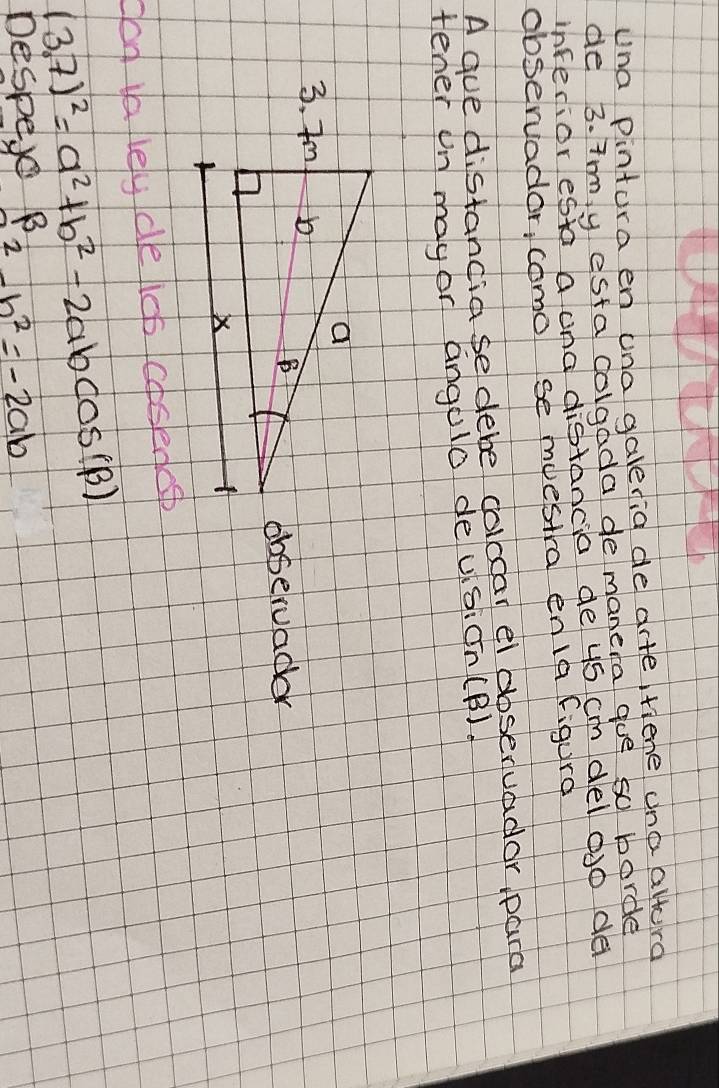 una pintura en una galeria de arte, tiene una altura
de 3.7m, y esta colgada de manera que su borde
inferior esta a una distancia de 45 cm del ojo del
observador, como se muestra en la figura
A que distancia se debe colocar el observador, para
tener un mayor angulo de vision (β).
a
3.7m
b
β
observador
x
con la ley de los cosenos
(3,7)² = a² + b² - 2ab cos(β)
Despejo β
² - b² = -2ab